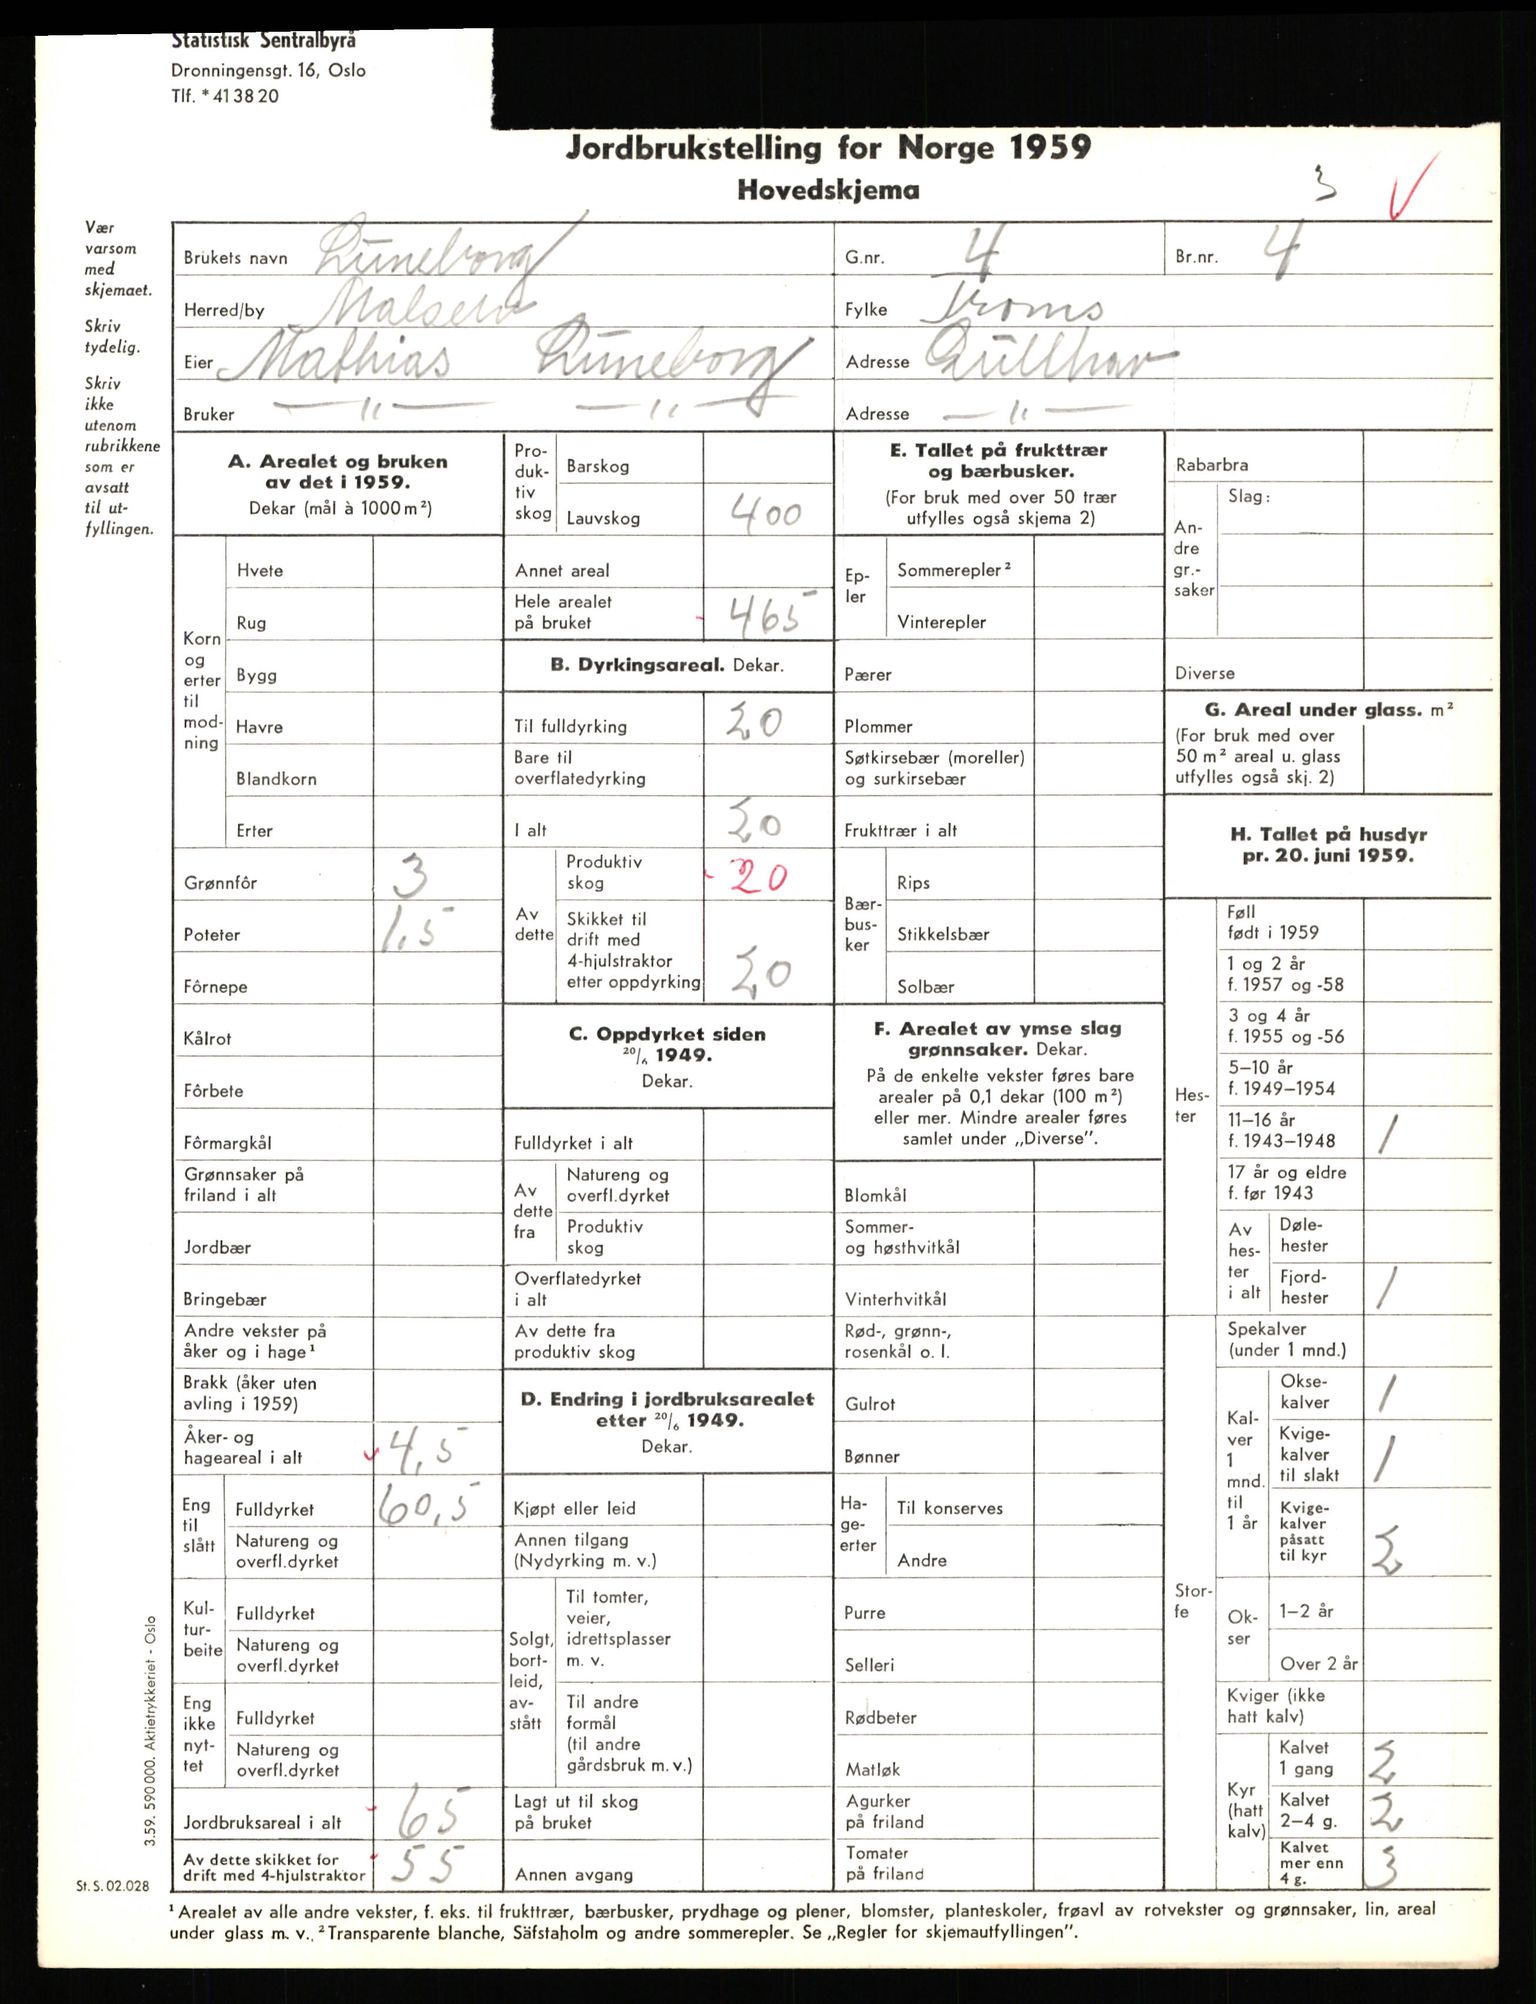 Statistisk Sentralbyrå
Dronningensgt. 16, Oslo
Tlf. * 41 38 20
Jordbrukstelling for Norge 1959
Hovedskjema
3
Vær varsom med skjemaet.
Skriv tydelig.
Skriv ikke utenom rubrikkene som er avsatt til ut-fyllingen.
Brukets navn Luneborg G.nr. 4 Br.nr. 4
Herred/by Målselv Fylke Troms
Eier Mathias Luneborg Adresse Gullhav
Bruker —"— —"— Adresse —"—
A. Arealet og bruken av det i 1959.
Dekar (mål à 1000 m²)
Korn og erter til mod-ning
Hvete
Rug
Bygg
Havre
Blandkorn
Erter
Grønnfôr 3
Poteter 1,5
Fôrnepe
Kålrot
Fôrbete
Fôrmargkål
Grønnsaker på friland i alt
Jordbær
Bringebær
Andre vekster på åker og i hage ¹
Brakk (åker uten avling i 1959)
Åker- og hageareal i alt 4,5
Eng til slått
Fulldyrket 60,5
Natureng og overfl.dyrket
Kul-tur-beite
Fulldyrket
Natureng og overfl.dyrket
Eng ikke nyt-tet
Fulldyrket
Natureng og overfl.dyrket
Jordbruksareal i alt 65
Av dette skikket for drift med 4-hjulstraktor 55
Pro-duk-tiv skog
Barskog
Lauvskog 400
Annet areal
Hele arealet på bruket 465
B. Dyrkingsareal. Dekar.
Til fulldyrking 20
Bare til overflatedyrking
I alt 20
Av dette
Produktiv skog 20
Skikket til drift med 4-hjulstraktor etter oppdyrking 20
C. Oppdyrket siden 20/6 1949.
Dekar.
Fulldyrket i alt
Av dette fra
Natureng og overfl.dyrket
Produktiv skog
Overflatedyrket i alt
Av dette fra produktiv skog
D. Endring i jordbruksarealet etter 20/6 1949.
Dekar.
Kjøpt eller leid
Annen tilgang (Nydyrking m. v.)
Solgt, bort-leid, av-stått
Til tomter, veier, idrettsplasser m. v.
Til andre formål (til andre gårdsbruk m. v.)
Lagt ut til skog på bruket
Annen avgang
E. Tallet på frukttrær og bærbusker.
(For bruk med over 50 trær utfylles også skjema 2)
Ep-ler
Sommerepler ²
Vinterepler
Pærer
Plommer
Søtkirsebær (moreller) og surkirsebær
Frukttrær i alt
Bær-bus-ker
Rips
Stikkelsbær
Solbær
F. Arealet av ymse slag grønnsaker. Dekar.
På de enkelte vekster føres bare arealer på 0,1 dekar (100 m²) eller mer. Mindre arealer føres samlet under „Diverse”.
Blomkål
Sommer- og høsthvitkål
Vinterhvitkål
Rød-, grønn-, rosenkål o. l.
Gulrot
Bønner
Ha-ge-erter
Til konserves
Andre
Purre
Selleri
Rødbeter
Matløk
Agurker på friland
Tomater på friland
Rabarbra
An-dre gr.-saker
Slag:
Diverse
G. Areal under glass. m²
(For bruk med over 50 m² areal u. glass utfylles også skj. 2)
H. Tallet på husdyr pr. 20. juni 1959.
Hes-ter
Føll født i 1959
1 og 2 år f. 1957 og -58
3 og 4 år f. 1955 og -56
5–10 år f. 1949–1954
11–16 år f. 1943–1948 1
17 år og eldre f. før 1943
Av hes-ter i alt
Døle-hester
Fjord-hester 1
Stor-fe
Spekalver (under 1 mnd.)
Kal-ver 1 mnd. til 1 år
Okse-kalver 1
Kvige-kalver til slakt 1
Kvige-kalver påsatt til kyr 2
Ok-ser
1–2 år
Over 2 år
Kviger (ikke hatt kalv)
Kyr (hatt kalv)
Kalvet 1 gang 2
Kalvet 2–4 g. 2
Kalvet mer enn 4 g. 3
3.59. 590 000. Aktietrykkeriet - Oslo
St. S. 02.028
¹ Arealet av alle andre vekster, f. eks. til frukttrær, bærbusker, prydhage og plener, blomster, planteskoler, frøavl av rotvekster og grønnsaker, lin, areal
under glass m. v.. ² Transparente blanche, Säfstaholm og andre sommerepler. Se „Regler for skjemautfyllingen”.